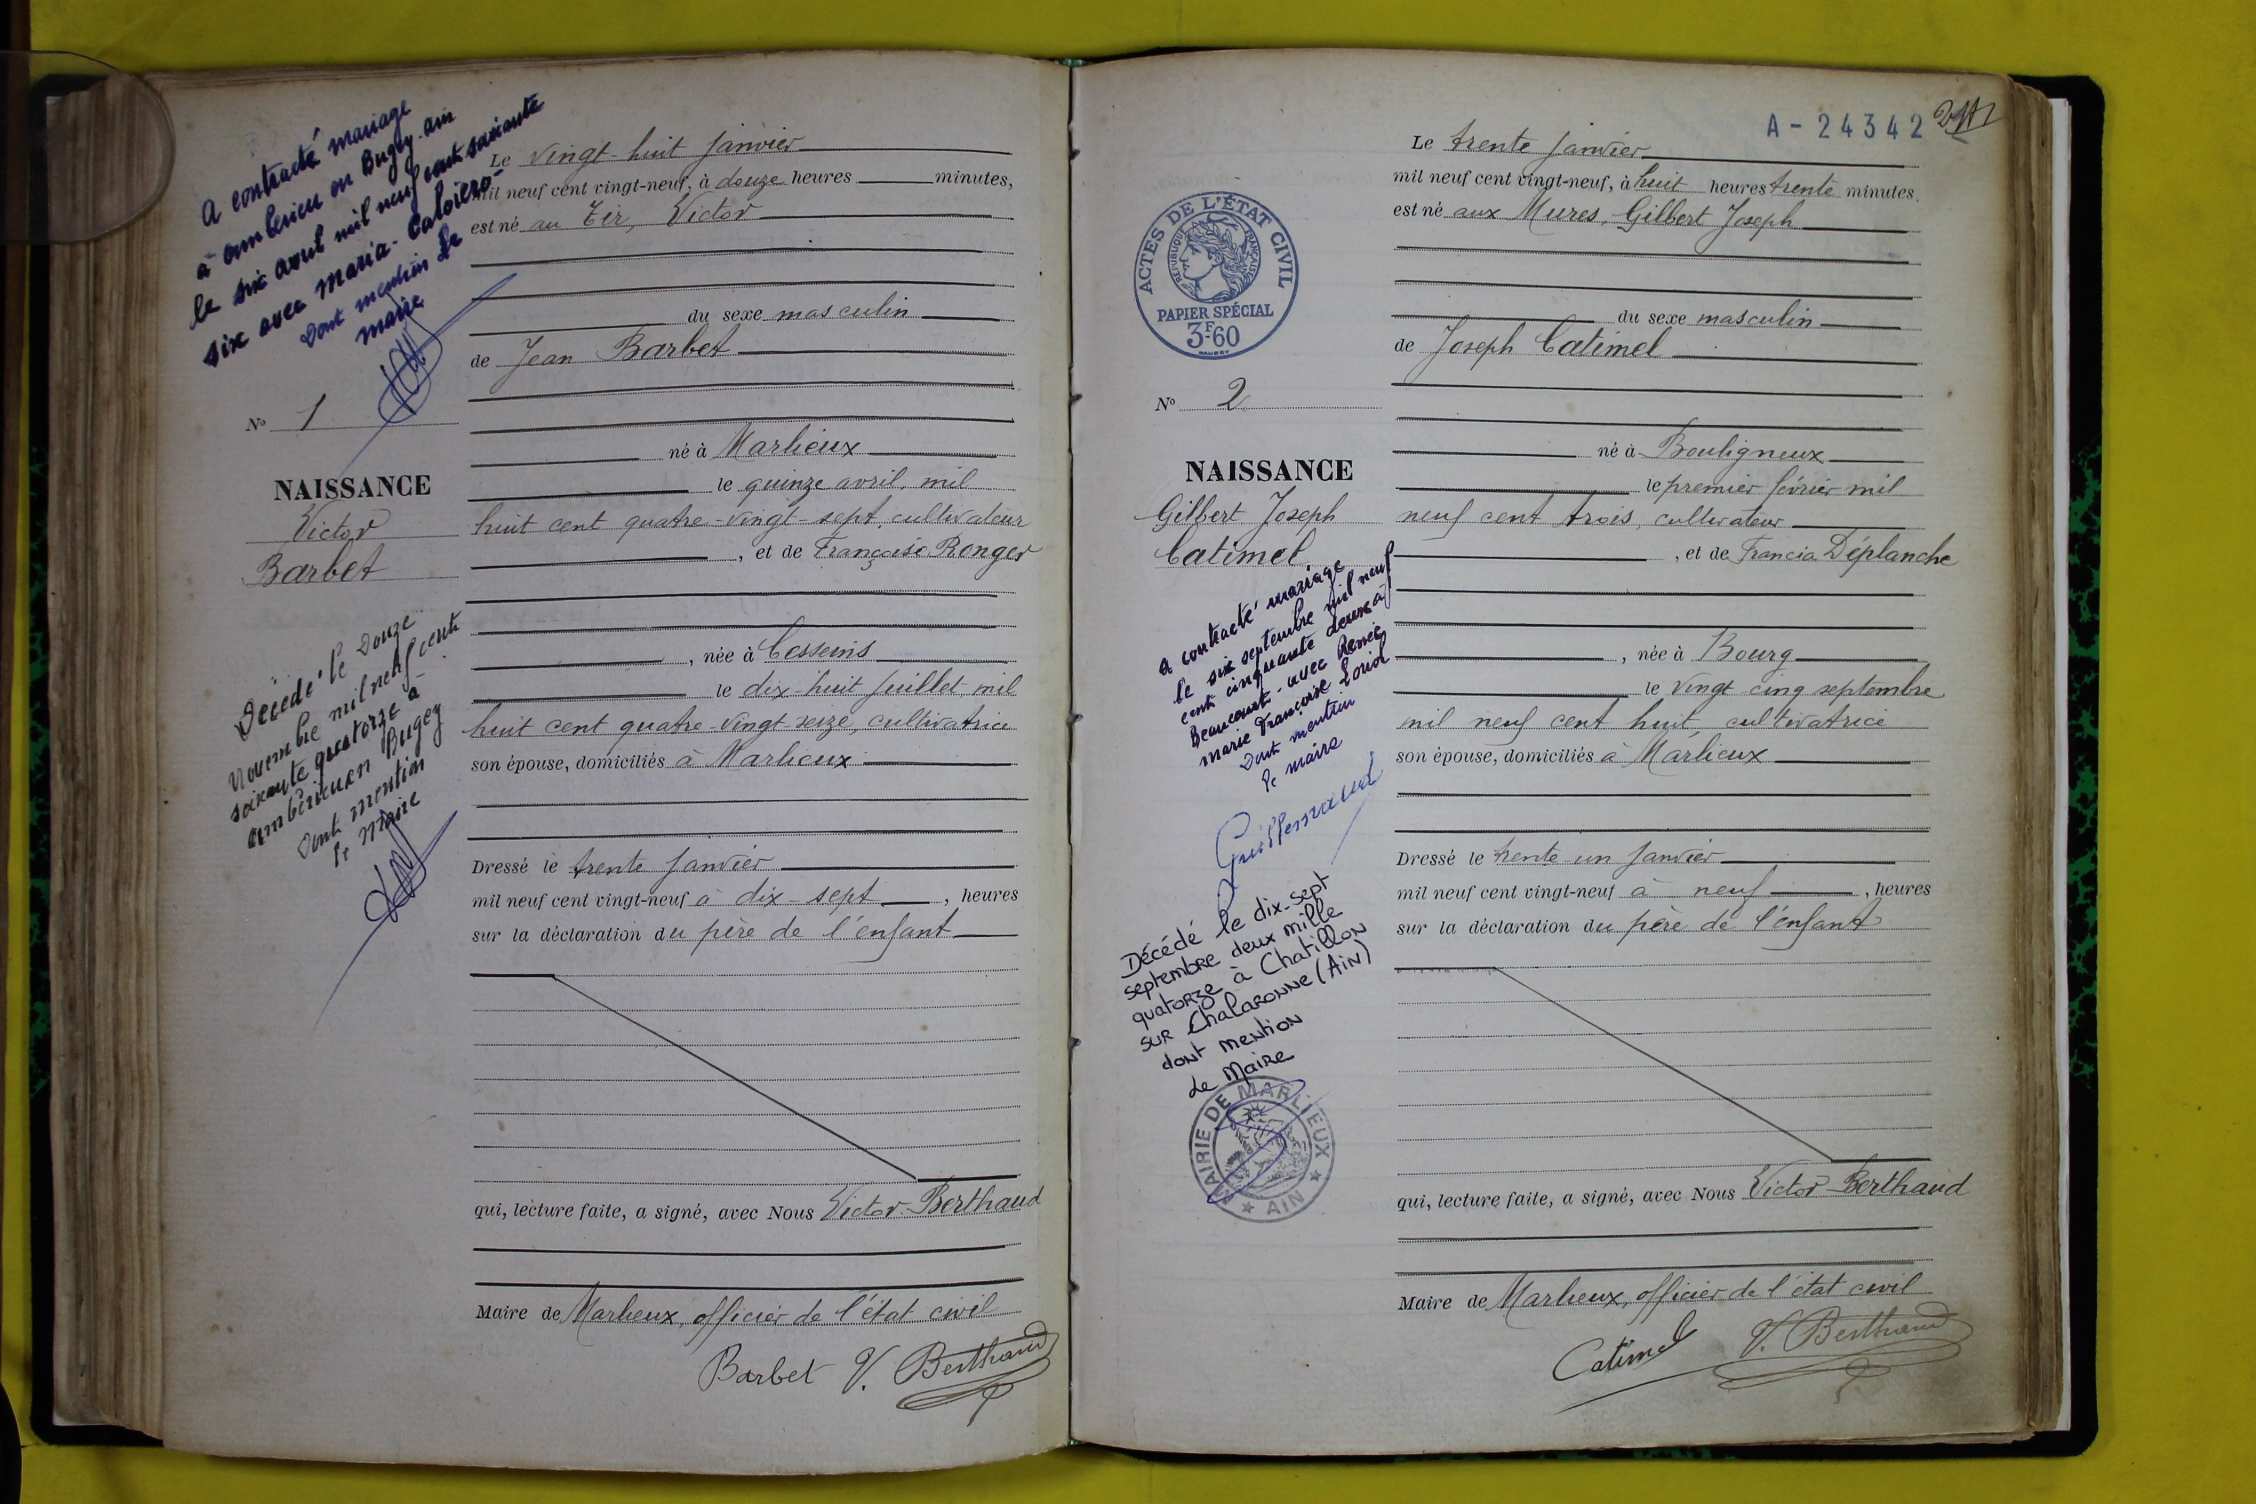 A contracté mariage
à ambérieu en Bugey. ain
le six avril mil neuf cent soixante
six avec Maria
dont mention Le
maire
N° 1
NAISSANCE
Victor
Barbet
Décédé le douze
novembre mil neuf cent
soixante quatorze à
ambérieu en Bugey
dont mention
le Maire
Le vingt-huit janvier
mil neuf cent vingt-neuf, à douze heures minutes,
est né au Tir, Victor
du sexe masculin
de Jean Barbet
né à Marlieux
le quinze avril, mil
huit cent quatre-vingt-sept, cultivateur
, et de Françoise Ronger
, née à Cesseins
le dix-huit juillet mil
huit cent quatre-vingt-seize, cultivatrice
son épouse, domiciliés à Marlieux
Dressé le trente janvier
mil neuf cent vingt-neuf à dix-sept , heures
sur la déclaration du père de l'enfant
qui, lecture faite, a signé, avec Nous Victor Berthaud
Maire de Marlieux, officier de l'état civil
Barbet V. Berthaud
A-24342
ACTES DE L'ÉTAT CIVIL
RÉPUBLIQUE FRANÇAISE
PAPIER SPÉCIAL
3F.60
N° 2
NAISSANCE
Gilbert Joseph
Catimel
A contracté mariage
le six septembre mil neuf
cent cinquante deux à
Beaucourt - avec Renée
Marie Françoise
dont mention
le maire
Guillemaud
Décédé le dix-sept
septembre deux mille
quatorze à Chatillon
sur Chalaronne (Ain)
dont mention
Le Maire
MAIRIE DE MARLIEUX
AIN
Le trente janvier
mil neuf cent vingt-neuf, à huit heures trente minutes.
est né aux Mures, Gilbert Joseph
du sexe masculin
de Joseph Catimel
né à Bouligneux
le premier février mil
neuf cent trois, cultivateur
, et de Francia Déplanche
, née à Bourg
le vingt-cinq septembre
mil neuf cent huit, cultivatrice
son épouse, domiciliés à Marlieux
Dressé le trente-un janvier
mil neuf cent vingt-neuf à neuf , heures
sur la déclaration du père de l'enfant
qui, lecture faite, a signé, avec Nous Victor Berthaud
Maire de Marlieux, officier de l'état civil
Catimel V. Berthaud